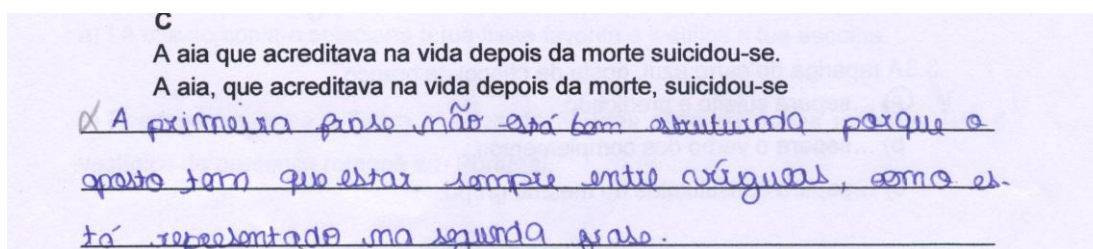 C
A aia que acreditava na vida depois da morte suicidou-se.
A aia, que acreditava na vida depois da morte, suicidou-se
A primeira frase não está bem estruturada porque o
aposto tem que estar sempre entre vírgulas, como es-
tá representado na segunda frase.